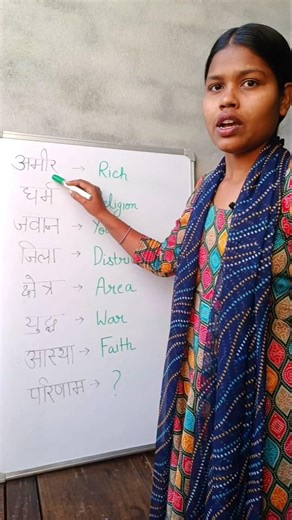 अमीर → Rich
धर्म religion
जवान →
जिला → Distri
क्षेत्र → Area
युद्ध → War
आस्था → Faith
परिणाम → ?